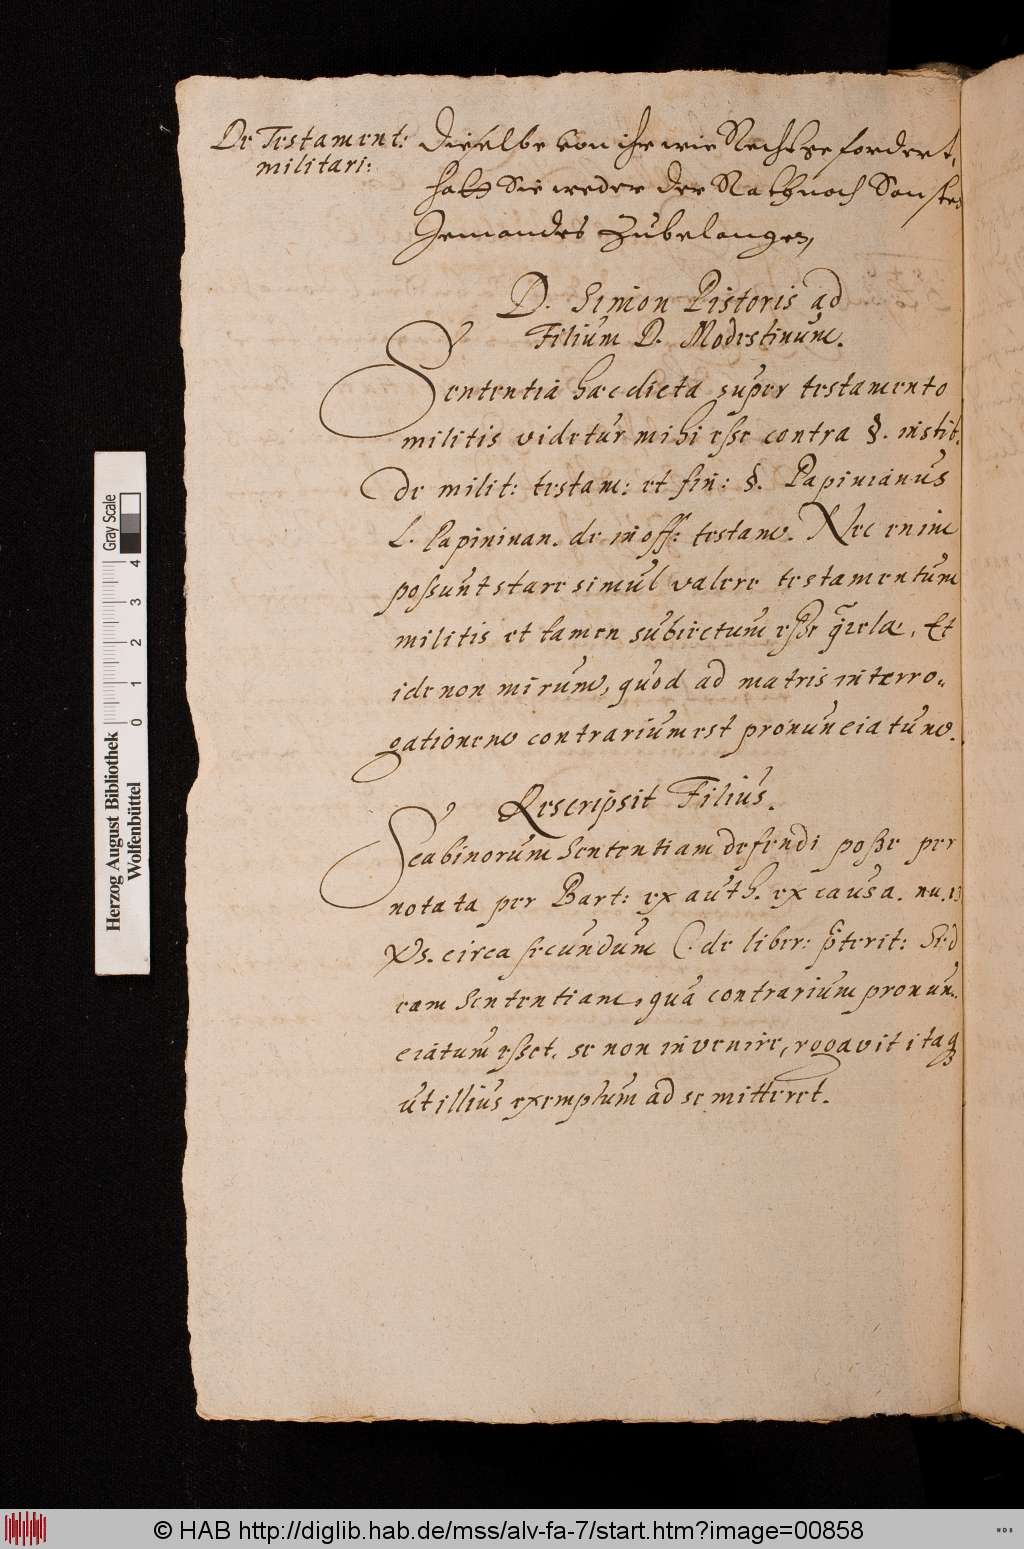 De Testament:
militari:
Dieselbe von ihr wie Recht gefordert,
hatt Sie weder der Rath noch Sonsten
Jemandes Zubelangen,
D. Simon Pistoris ad
Filium D. Modestinum.
Sententia haec dicta super testamento
militis videtur mihi esse contra §. instit.
de milit: testam: et fin: §. Papinianus
L. Papininan. de inoff: testam. Nec enim
possunt stare simul valere testamentum
militis et tamen subiectum esse q̃relae, Et
ide non mirum, quod ad matris interro„
gationem contrarium est pronunciatum.
Rescripsit Filius.
Scabinorum Sententiam defendi posse per
notata per Bart: ex auth. ex causa. nu. 13
Vs. circa secundum C. de liber: p̃terit: Sed
eam Sententiam, qua contrarium pronun„
ciatum esset, se non invenire, rogavit itaq
ut illius exemplum ad se mitteret.
Gray Scale
0 1 2 3 4
Herzog August Bibliothek
Wolfenbüttel
© HAB http://diglib.hab.de/mss/alv-fa-7/start.htm?image=00858